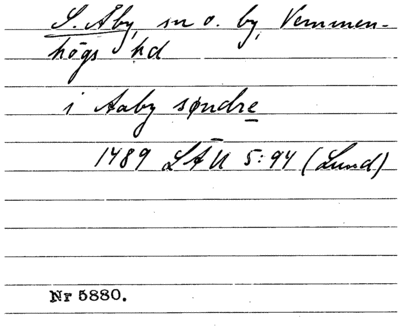 S. Åby, sn o. by, Vemmen-
högs hd
i Aaby søndre
1489 LÄU 5:94 (Lund)
Nr 5880.